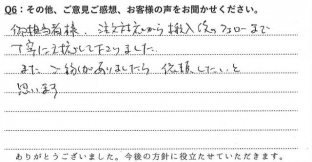 Q6：その他、ご意見ご感想、お客様の声をお聞かせください。
担当者様、注文対応から搬入後のフォローまで
丁寧に対応して下さりました。
また ご縁がありましたら 依頼したいと
思います
ありがとうございました。今後の方針に役立たせていただきます。